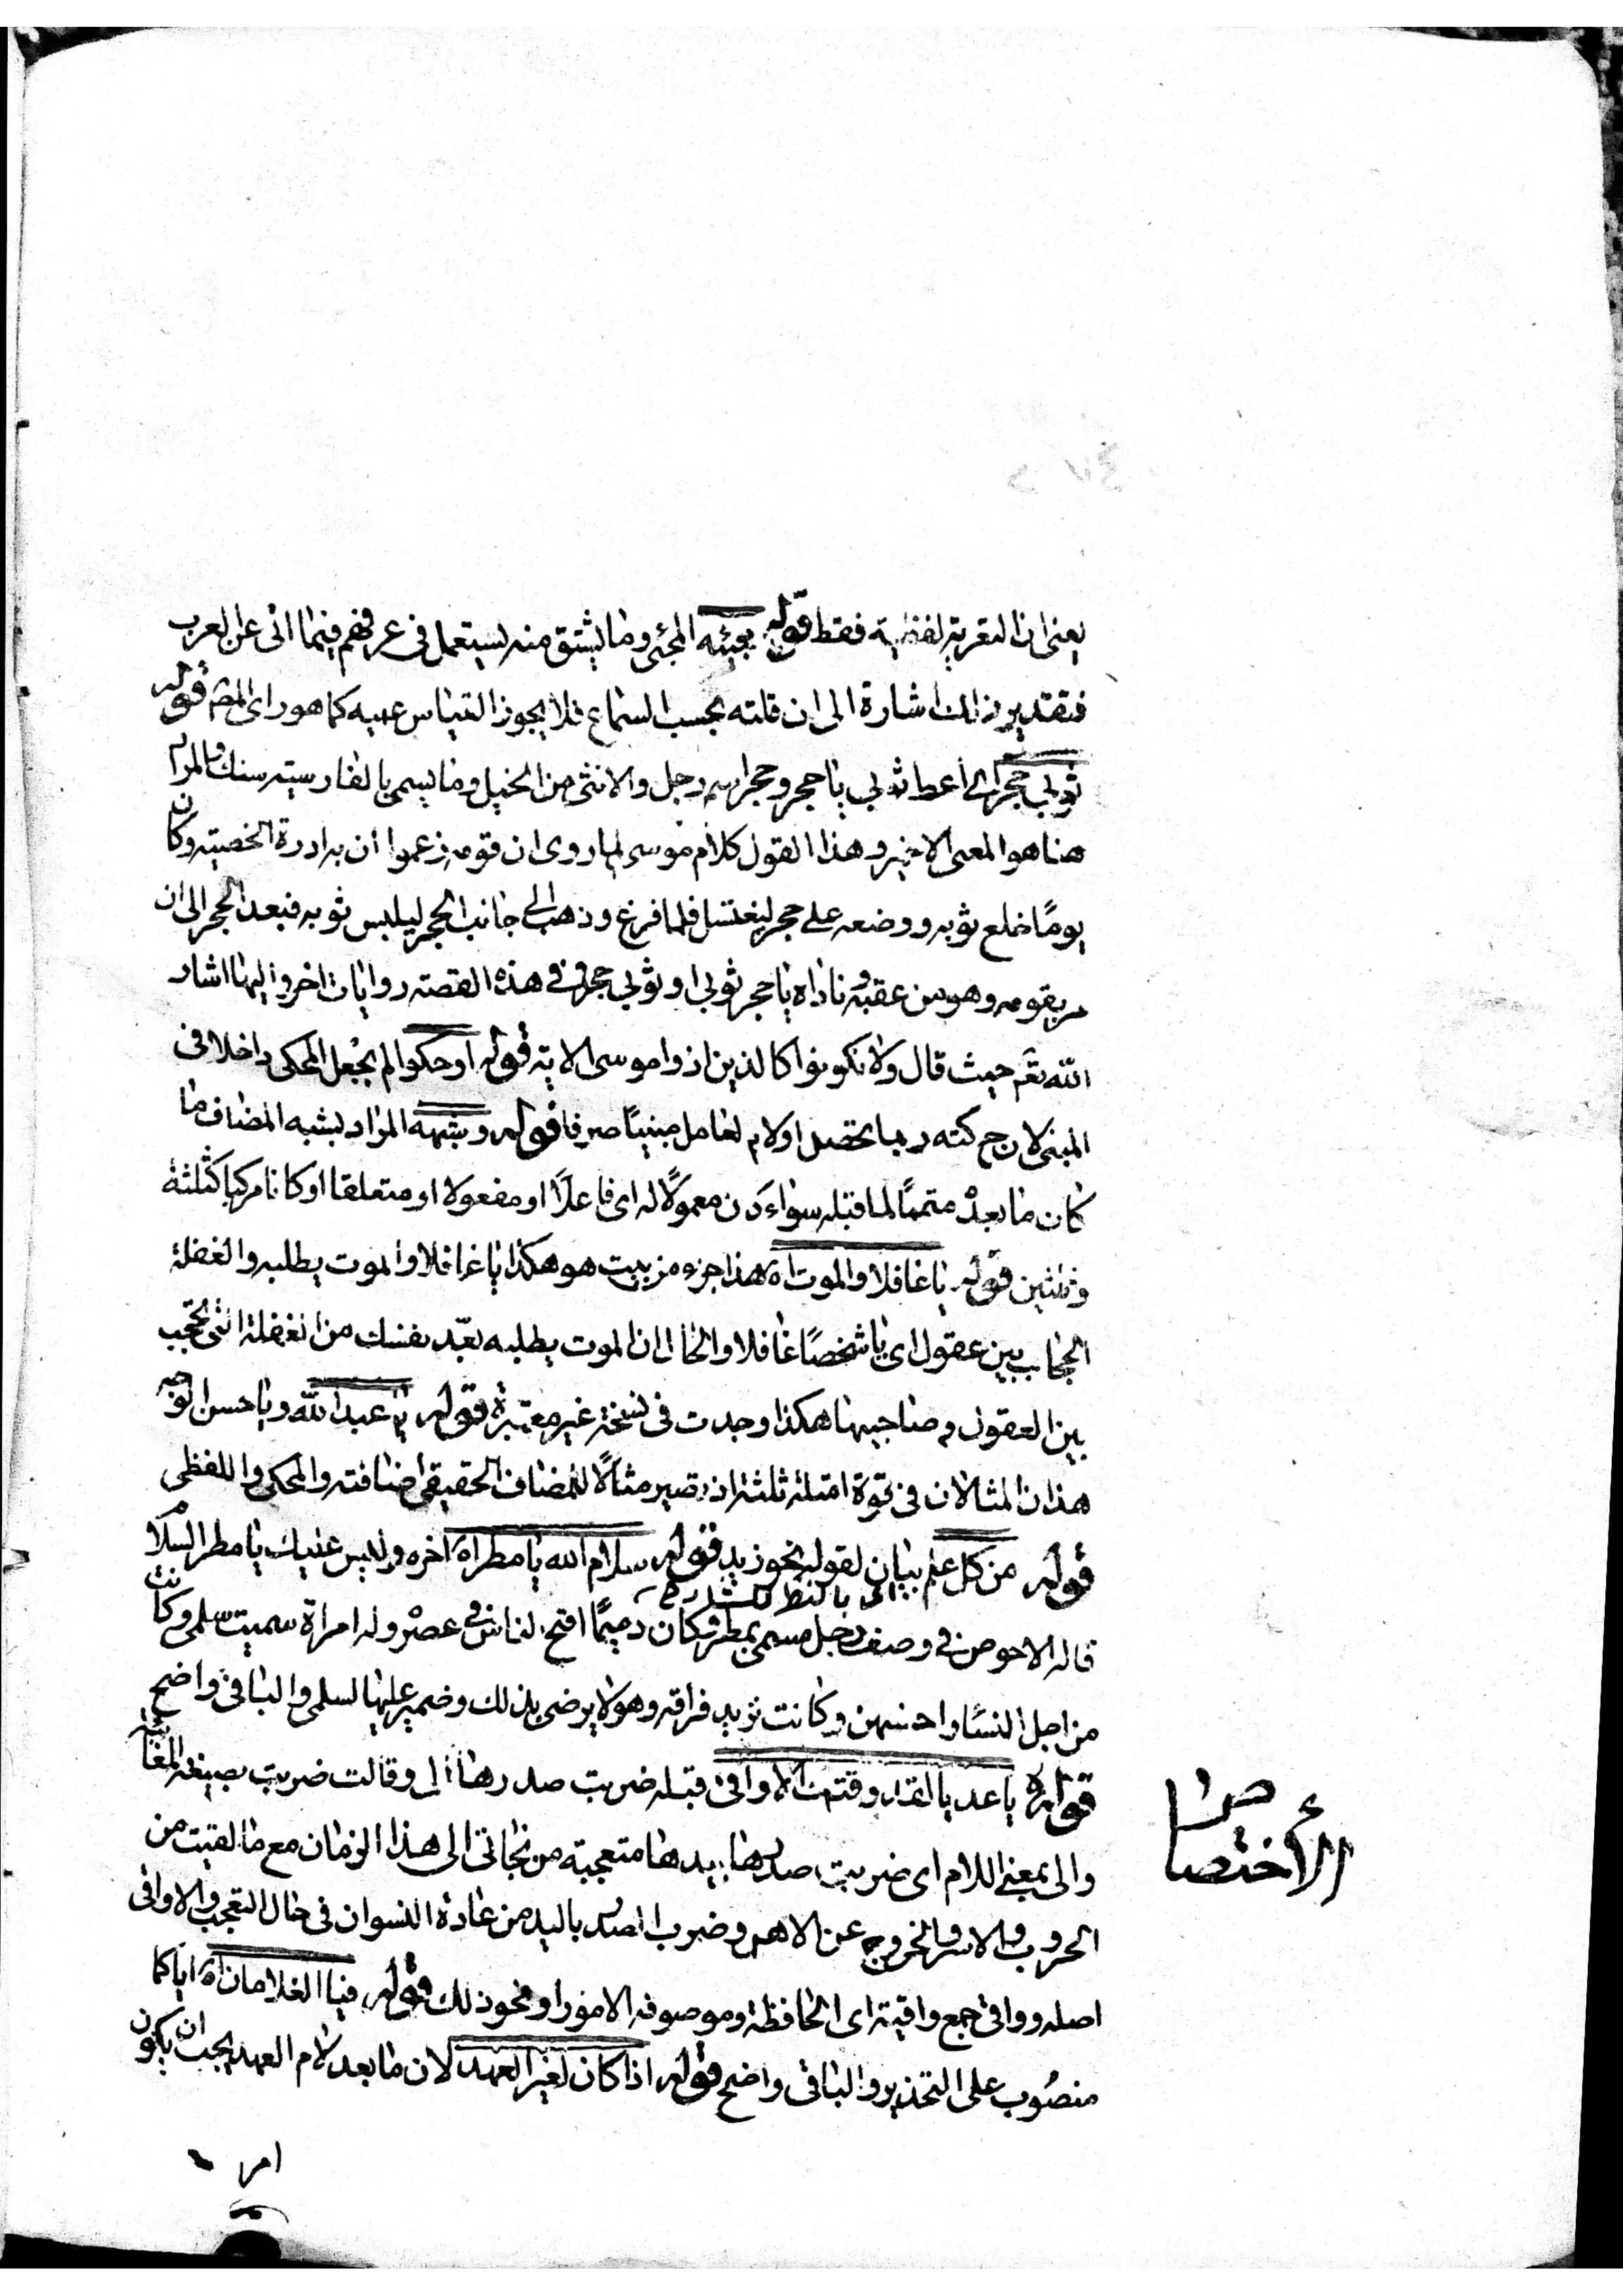 يعنى ان التعريه لفظية فقط قوله بعينه المجئ وما يشتق منه يستعمل فى عرفهم فيما اتى عن العرب
فتقدير ذلك اشارة الى ان قلته بحسب السماع فلا يجوز القياس عليه كما هو راى المصـ قوله
ثوبى حجر اى أعط ثوبى يا حجر وحجر اسم رجل والانثى من الخيل وما يسمى بالفارسيته سنك والمراد
هنا هو المعنى الاخير وهذا القول كلام موسى لما روى ان قومه زعموا أن به ادرة الخصيته وكان
يومًا خلع ثوبه ووضعه على حجر ليغتسل فلما فرغ وذهب الى جانب الحجر ليلبس ثوبه فبعد الحجر الى ان
مر بقومه وهو من عقبه وناداه يا حجر ثوبى او ثوبى حجر وفى هذه القصته روايات اخر واليها اشار
الله تعـ حيث قال ولا تكونوا كالذين اذوا موسى الاية قوله او حكوا لم يجعل المحكى داخلا فى
المبنى لان حركته ربما تحصل اولا بعامل مبنيًا صرفا قوله وشبهه المراد بشبه المضاف ما
كان ما بعده متممًا لما قبله سواء كان معمولًا له اى فاعلًا او مفعولا او متعلقا او كانا مركبا كثلثة
وثلثين قوله يا غافلا والموت اه هذا جزء من بيت هو هكذا يا غافلا والموت يطلبه والغفلة
الحجاب بين عقول اى يا شخصًا غافلا والحال ان الموت يطلبه بعّد نفسك من الغفلة التى تحجب
بين العقول وصاحبيها هكذا وجدت فى نسخة غير معتبرة قوله يا عبد الله ويا حسن الوجه
هذان المثالان فى قوة امثلة ثلثة اذ تصير مثالًا للمضاف الحقيقى اضافته والمحكى واللفظى
قوله من كل علم بيان لقوله نحو زيد قوله سلام الله يا مطر اه اخره وليس عليك يا مطر السلام
قاله الاحوص فى وصف رجل مسمى بمطر وكان دميمًا اقبح الناس فى عصره وله امراة سميت سلمى وكانت
من اجل النسا واحسنهن وكانت تريد فراقه وهو لا يرضى بذلك وضمير عليها لسلمى والباقى واضح
قوله يا عديا لقد وقتك الاواقى قبله ضربت صدرها الى وقالت ضربت بصيغة المغائبة
والى بمعنى اللام اى ضربت صدرها بيدها متعجبة من نجاتى الى هذا الزمان مع ما لقيت من
الحروب والاسر والخروج عن الاهل وضرب الصدر باليد من عادة النسوان فى حال التعجب والاواقى
اصله وواقى جمع واقية اى الحافظة وموصوفه الامور او نحو ذلك قوله فيا الغلامان اه اياكما
منصُوب على التحذير والباقى واضح قوله اذا كان لغير العهد لان ما بعد لام العهد يجب ان يكون
الأختصاص
امر